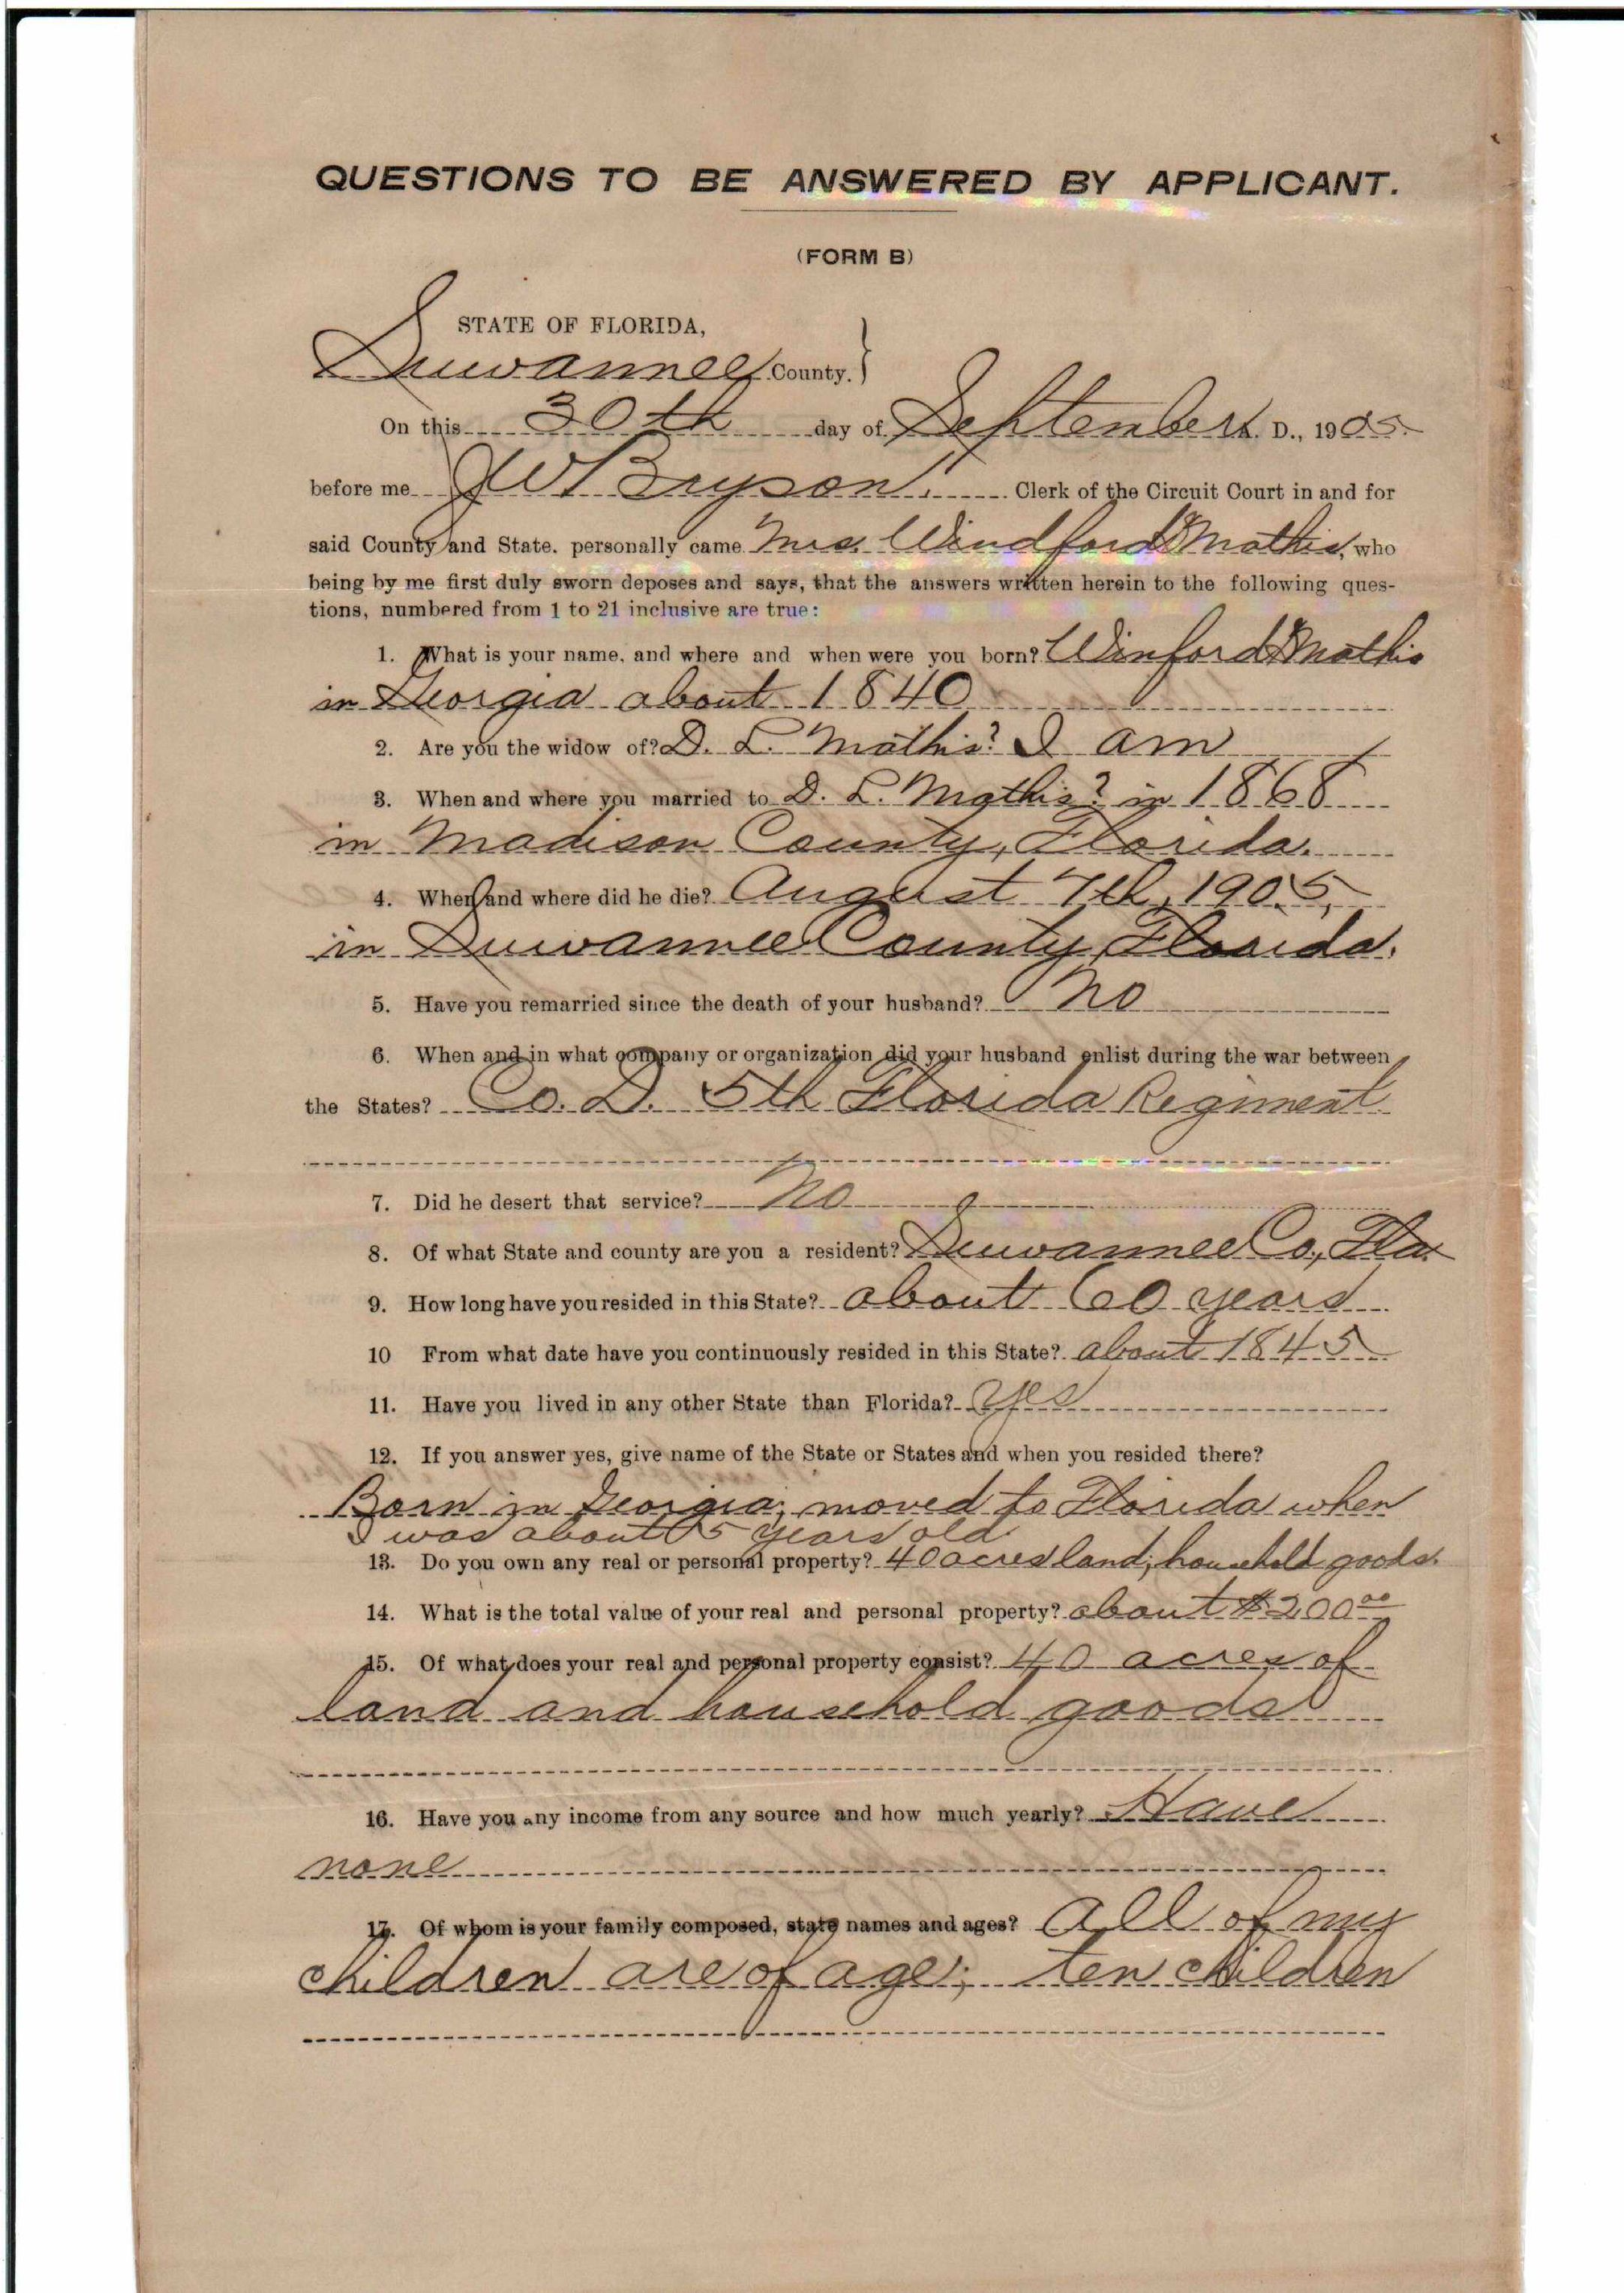 QUESTIONS TO BE ANSWERED BY APPLICANT.
(FORM B)
STATE OF FLORIDA,
Suwannee County. }
On this 30th day of September A. D., 1905.
before me J W Bryson, Clerk of the Circuit Court in and for
said County and State. personally came Mrs. Windford Mathis, who
being by me first duly sworn deposes and says, that the answers written herein to the following ques-
tions, numbered from 1 to 21 inclusive are true:
1. What is your name, and where and when were you born? Winford Mathis
in Georgia about 1840
2. Are you the widow of? D. L. Mathis? I am
3. When and where you married to D. L. Mathis? in 1868
in Madison County, Florida.
4. When and where did he die? August 7th, 1905,
in Suwannee County, Florida.
5. Have you remarried since the death of your husband? No
6. When and in what company or organization did your husband enlist during the war between
the States? Co. D. 5th Florida Regiment
7. Did he desert that service? No
8. Of what State and county are you a resident? Suwannee Co., Fla.
9. How long have you resided in this State? about 60 years
10 From what date have you continuously resided in this State? about 1845
11. Have you lived in any other State than Florida? Yes
12. If you answer yes, give name of the State or States and when you resided there?
Born in Georgia; moved to Florida when
I was about 5 years old
13. Do you own any real or personal property? 40 acres land; household goods.
14. What is the total value of your real and personal property? about $200.00
15. Of what does your real and personal property consist? 40 acres of
land and household goods
16. Have you any income from any source and how much yearly? Have
none
17. Of whom is your family composed, state names and ages? All of my
children are of age; ten children